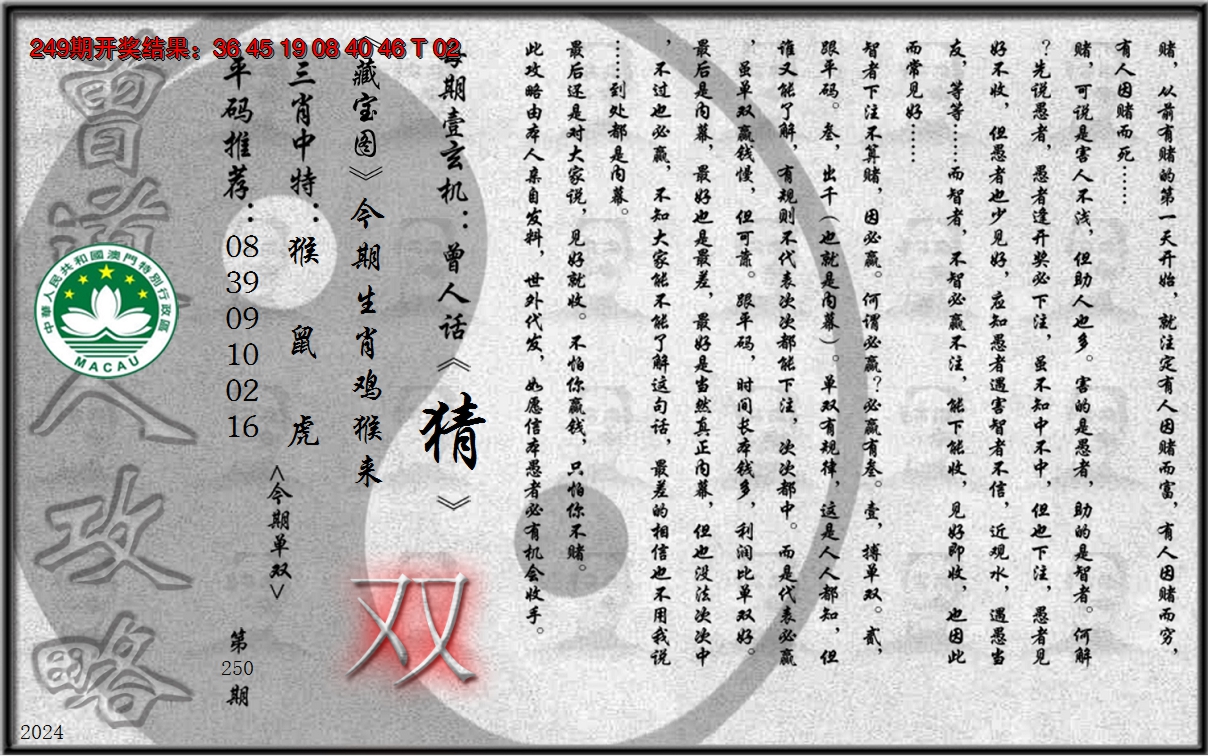 249期开奖结果：36 45 19 08 40 46 T 02
赌，从前有赌的第一天开始，就注定有人因赌而富，有人因赌而穷，
有人因赌而死……
赌，可说是害人不浅，但助人也多。害的是愚者，助的是智者。何解
？先说愚者，愚者逢开奖必下注，虽不知中不中，但也下注，愚者见
好不收，但愚者也少见好，应知愚者遇害智者不信，近观水，遇愚当
友，等等……而智者，不智必赢不注，能下能收，见好即收，也因此
而常见好……
智者下注不算赌，因必赢。何谓必赢？必赢有叁。壹，搏单双。贰，
跟平码。叁，出千（也就是内幕）。单双有规律，这是人人都知，但
谁又能了解，有规则不代表次次都能下注，次次都中。而是代表必赢
，虽单双赢钱慢，但可靠。跟平码，时间长本钱多，利润比单双好。
最后是内幕，最好也是最差，最好是当然真正内幕，但也没法次次中
，不过也必赢，不知大家能不能了解这句话，最差的相信也不用我说
……到处都是内幕。
最后还是对大家说，见好就收。不怕你赢钱，只怕你不赌。
此攻略由本人亲自发料，世外代发，如愿信本愚者必有机会收手。
每期壹玄机：曾人话《猜》
《藏宝图》今期生肖鸡猴来
双
三肖中特：猴 鼠 虎
<今期单双>
平码推荐：08 39 09 10 02 16
第250期
曾道人攻略
中華人民共和國澳門特別行政區
MACAU
2024